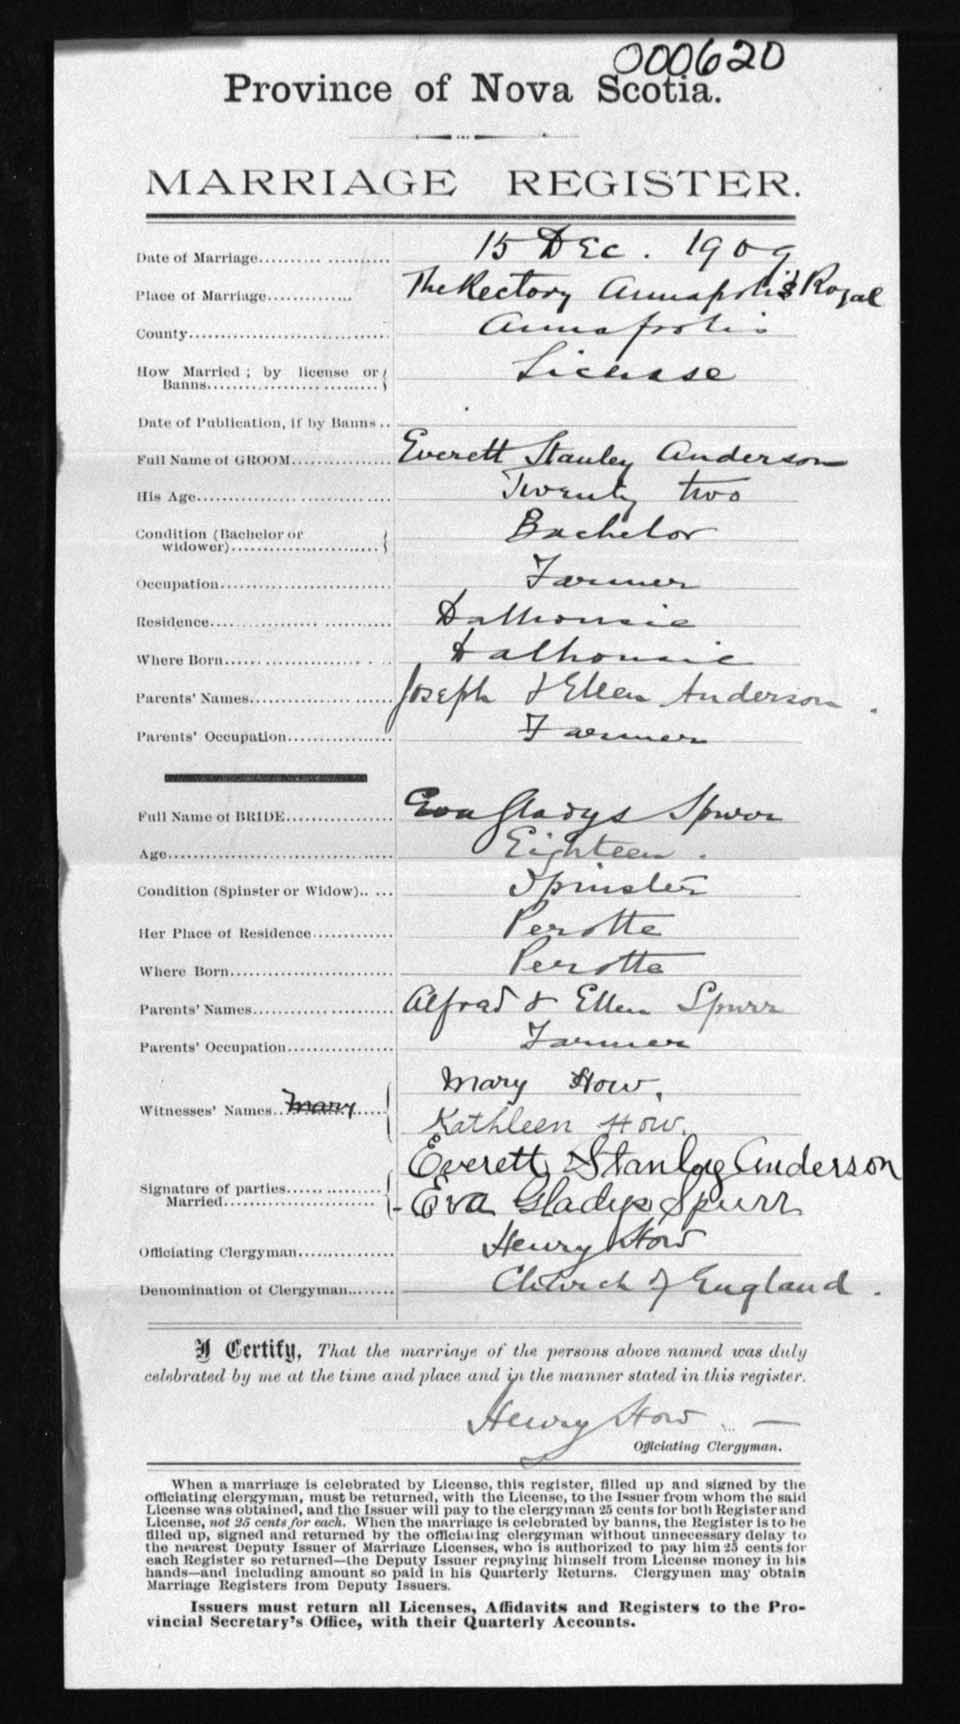 000620
Province of Nova Scotia.
MARRIAGE REGISTER.
Date of Marriage.................... 15 Dec. 1909
Place of Marriage............. The Rectory Annapolis Royal
County.............................. Annapolis
How Married; by license or
Banns........................ License
Date of Publication, if by Banns..
Full Name of GROOM................ Everett Stanley Anderson
His Age............................. Twenty two
Condition (Bachelor or
widower)........................ Bachelor
Occupation.......................... Farmer
Residence........................... Dalhousie
Where Born.......................... Dalhousie
Parents' Names...................... Joseph & Ellen Anderson.
Parents' Occupation................. Farmer
Full Name of BRIDE................. Eva Gladys Spurr
Age................................. Eighteen.
Condition (Spinster or Widow)..... Spinster
Her Place of Residence............. Perotte
Where Born.......................... Perotte
Parents' Names...................... Alfred & Ellen Spurr
Parents' Occupation................. Farmer
Mary How.
Witnesses' Names.. Mary....
Kathleen How.
Everett Stanley Anderson
Signature of parties...............
Married.......................... Eva Gladys Spurr
Officiating Clergyman............... Henry How
Denomination of Clergyman........ Church of England.
I Certify, That the marriage of the persons above named was duly
celebrated by me at the time and place and in the manner stated in this register.
Henry How
Officiating Clergyman.
When a marriage is celebrated by License, this register, filled up and signed by the
officiating clergyman, must be returned, with the License, to the Issuer from whom the said
License was obtained, and the Issuer will pay to the clergyman 25 cents for both Register and
License, not 25 cents for each. When the marriage is celebrated by banns, the Register is to be
filled up, signed and returned by the officiating clergyman without unnecessary delay to
the nearest Deputy Issuer of Marriage Licenses, who is authorized to pay him 25 cents for
each Register so returned—the Deputy Issuer repaying himself from License money in his
hands—and including amount so paid in his Quarterly Returns. Clergymen may obtain
Marriage Registers from Deputy Issuers.
Issuers must return all Licenses, Affidavits and Registers to the Pro-
vincial Secretary's Office, with their Quarterly Accounts.